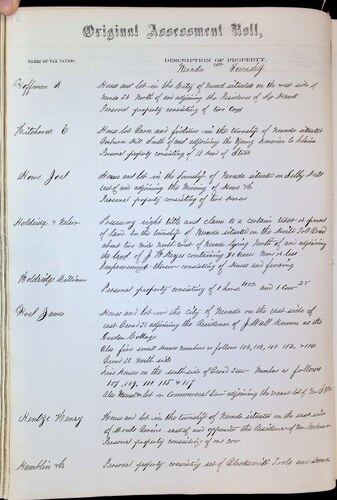 Original Assessment Roll,
NAMES OF TAX PAYERS.
DESCRIPTION OF PROPERTY.
Nevada Township
Hoffman A
House and lot in the City of Nevada situated on the west side of
Nevada St North of and adjoining the Residence of
Personal property consisting of two Cows
Kitchum C
House lot Barn and fixtures in the township of Nevada situated
Hill South of and adjoining the Young America Co Claim
Personal property consisting of 11 head of
Howe Joel
House and lot in the Township of Nevada situated on Selby Hill
east of and adjoining the Mining of &
Personal property consisting of two horses
Holdridge &
Possessory right title and claim to a certain tract or parcel
of land in the township of Nevada situated on the Toll Road
about two miles north west of Nevada lying North of and adjoining
the land of J W Keyes containing acres more or less
Improvement thereon consisting of House and fencing
Holdridge William
Personal property consisting of 1 horse and 1 Cow
Hoel James
House and lot in the City of Nevada on the east side of
east Broad St adjoining the Residence of J Hall known as the
Garden Cottage
Also five small Houses number as follows 106, 108, 110 112, & 114
Broad St North side
Five Houses on the south side of Broad Street Number as follows
107, 109, 111 115 & 117
Also House & lot on Commercial Street adjoining the
Hentze Henry
House and lot in the township of Nevada situated on the east side
of Ravine east of and opposite the Residence of
Personal property consisting of one cow
Hamblin & Co
Personal property consisting set of Blacksmith Tools and